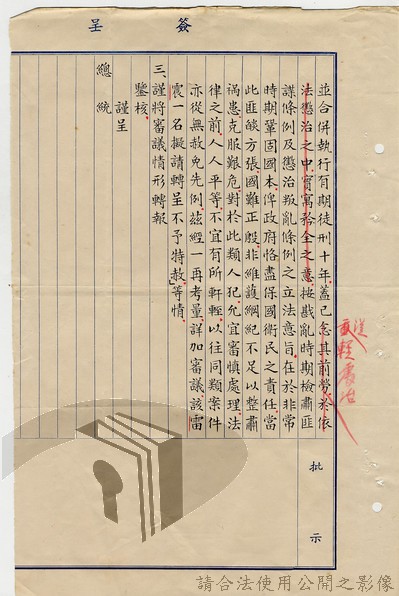 簽呈
並合併執行有期徒刑十年。蓋已念其前勞於依
法懲治之中,實寓矜全之意。按戡亂時期檢肅匪
諜條例及懲治叛亂條例之立法意旨,在於非常
時期鞏固國本,俾政府恪盡保國衛民之責任,當
此匪燄方張,國難正殷,非維護綱紀不足以整肅
禍患,克服艱危,對於此類人犯,允宜審慎處理,法
律之前,人人平等,不宜有所軒輊,以往同類案件
亦從無赦免先例,茲經一再考量,詳加審議,該雷
震一名擬請轉呈不予特赦」等情。
三、謹將審議情形轉報
鑒核。
謹呈
總統
從
輕處治
批示
請合法使用公開之影像